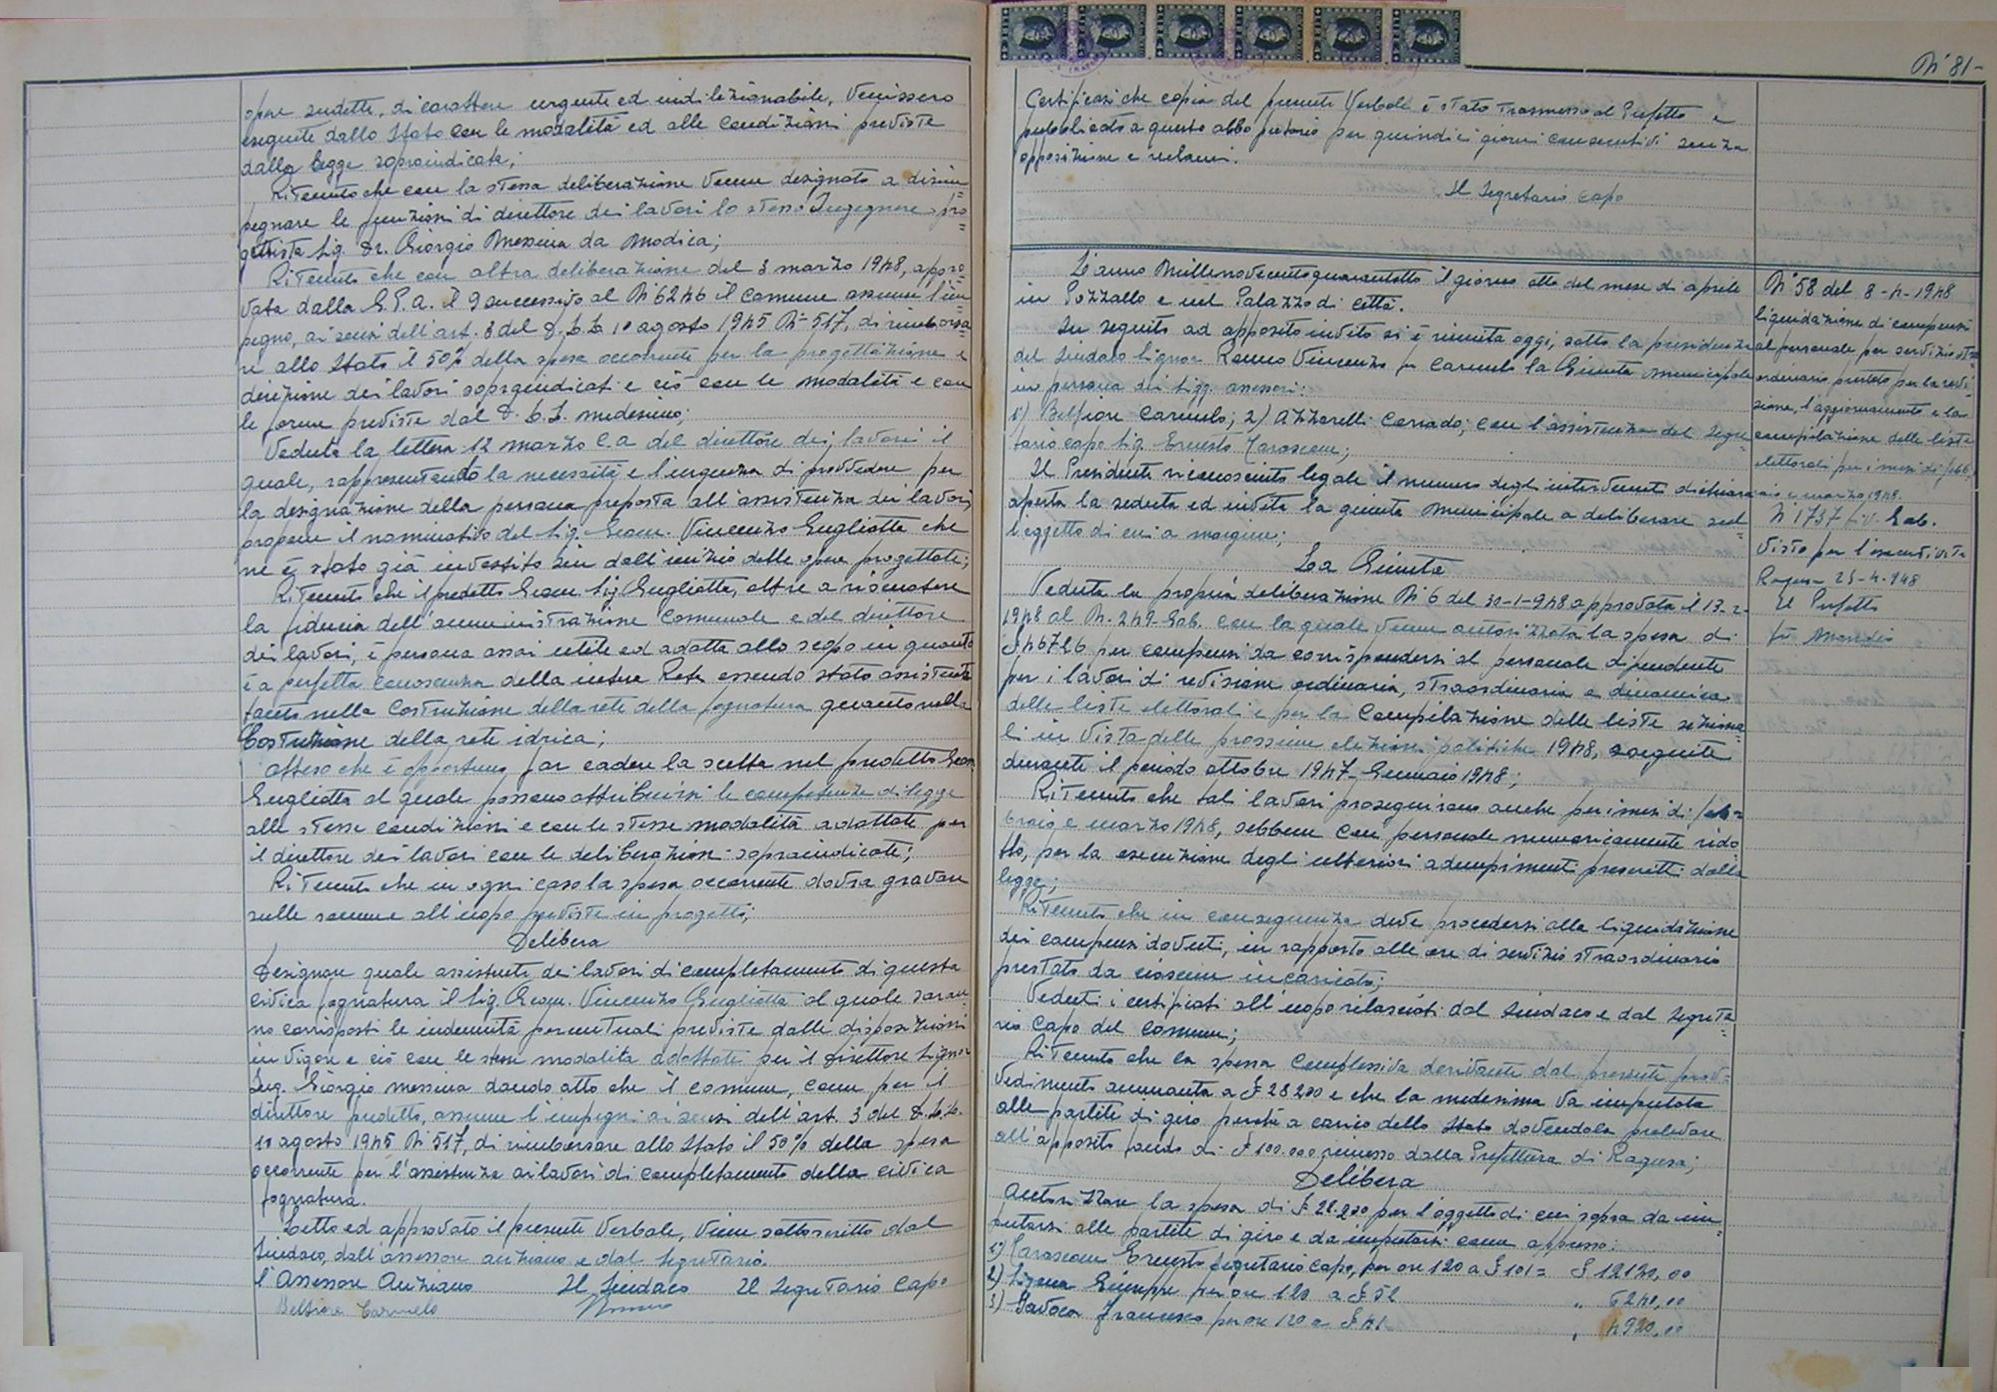 opere sudette, di carattere urgente ed indilizionabile, venissero
eseguite dallo Stato con le modalità ed alle condizioni previste
dalla legge sopraindicata;
Ritenuto che con la stessa deliberazione venne designato a disim=
pegnare le funzioni di direttore dei lavori lo stesso Ingegnere pro=
gettista Sig. Dr. Giorgio Messina da Modica;
Ritenuto che con altra deliberazione del 3 marzo 1948, appro=
vata dalla G.P.A. il 9 successivo al N° 6246 il comune assunse l'im=
pegno, ai sensi dell'art. 3 del D.L.L. 10 agosto 1945 N° 517, di rimborsa=
re allo Stato il 50% della spesa occorrente per la progettazione e
direzione dei lavori sopraindicati e ciò con le modalità e con
le forme previste dal D.L.L. medesimo;
Veduta la lettera 12 marzo c.a. del direttore dei lavori il
quale, rappresentando la necessità e l'urgenza di provvedere per
la designazione della persona preposta all'assistenza dei lavori,
propone il nominativo del Sig. Geom. Vincenzo Gugliotta che
ne è stato già investito sin dall'inizio delle opere progettate;
Ritenuto che il predetto Geom. Sig. Gugliotta, oltre a riscuotere
la fiducia dell'amministrazione Comunale e del direttore
dei lavori, è persona assai utile ed adatta allo scopo in quanto
è a perfetta conoscenza della intera Rete essendo stato assistente
tanto nella costruzione della rete della fognatura quanto nella
Costruzione della rete idrica;
Atteso che è opportuno far cadere la scelta nel predetto Geom.
Gugliotta al quale possono attribuirsi le competenze di legge
alle stesse condizioni e con le stesse modalità adottate per
il direttore dei lavori con le deliberazioni sopraindicate;
Ritenuto che in ogni caso la spesa occorrente dovrà gravare
sulle somme all'uopo previste in progetti;
Delibera
Designare quale assistente dei lavori di completamento di questa
civica fognatura il Sig. Geom. Vincenzo Gugliotta al quale saran=
no corrisposti le indennità percentuali previste dalle disposizioni
in vigore e ciò con le stesse modalità adottate per il direttore Signor
Ing. Giorgio Messina dando atto che il comune, come per il
direttore predetto, assume l'impegno ai sensi dell'art. 3 del D.L.L.
10 agosto 1945 N° 517, di rimborsare allo Stato il 50% della spesa
occorrente per l'assistenza ai lavori di completamento della civica
fognatura.
Letto ed approvato il presente verbale, viene sottoscritto dal
Sindaco, dall'assessore anziano e dal Segretario.
L'Assessore Anziano Il Sindaco Il Segretario Capo
Belfiore Carmelo
N° 81-
Certificasi che copia del presente Verbale è stato trasmesso al Prefetto e
pubblicato a questo albo pretorio per quindici giorni consecutivi senza
opposizione e reclami.
Il Segretario capo
L'anno Millenovecentoquarantotto il giorno otto del mese di aprile
in Pozzallo e nel Palazzo di città.
In seguito ad apposito invito si è riunita oggi, sotto la presidenza
del Sindaco Signor Rauno Vincenzo fu Carmelo la Giunta Municipale
in persona dei Sigg. assessori:
1) Belfiore Carmelo; 2) Azzarelli Corrado; con l'assistenza del Segre=
tario capo Sig. Ernesto Tarascone;
Il Presidente riconosciuto legale il numero degli intervenuti dichiara
aperta la seduta ed invita la giunta Municipale a deliberare sul=
l'oggetto di cui a margine;
La Giunta
Veduta la propria deliberazione N° 6 del 30-1-948 approvata il 13-2-
1948 al N. 249-Gab. con la quale venne autorizzata la spesa di
£ 46726 per compensi da corrispondersi al personale dipendente
per i lavori di revisione ordinaria, straordinaria e dinamica
delle liste elettorali e per la compilazione delle liste seziona=
li in vista delle prossime elezioni politiche 1948, eseguite
durante il periodo ottobre 1947-Gennaio 1948;
Ritenuto che tali lavori proseguirono anche per i mesi di feb=
braio e marzo 1948, sebbene con personale numericamente ridot=
to, per la esecuzione degli ulteriori adempimenti prescritti dalla
legge;
Ritenuto che in conseguenza deve procedersi alla liquidazione
dei compensi dovuti, in rapporto alle ore di servizio straordinario
prestato da ciascun incaricato;
Veduti i certificati all'uopo rilasciati dal Sindaco e dal Segreta=
rio Capo del comune;
Ritenuto che la spesa complessiva derivante dal presente prov=
vedimento ammonta a £ 28200 e che la medesima va imputata
alle partite di giro perchè a carico dello Stato dovendola prelevare
all'apposito fondo di £ 100.000 rimesso dalla Prefettura di Ragusa;
Delibera
Autorizzare la spesa di £ 28.200 per l'oggetto di cui sopra da im=
putarsi alle partite di giro e da imputarsi come appresso:
1) Tarascone Ernesto Segretario capo, per ore 120 a £ 101= £ 12120,00
2) Giuseppe per ore 120 a £ 52 " 6240,00
3) Francesco per ore 120 a £ 41 " 4920,00
N° 58 del 8-4-1948
liquidazione di compensi
al personale per servizio stra=
ordinario prestato per la revi=
sione, l'aggiornamento e la
compilazione delle liste
elettorali per i mesi di febb=
raio e marzo 1948.
N° 1737 Div. Gab.
Visto per l'esecutività
Ragusa 23-4-948
Il Prefetto